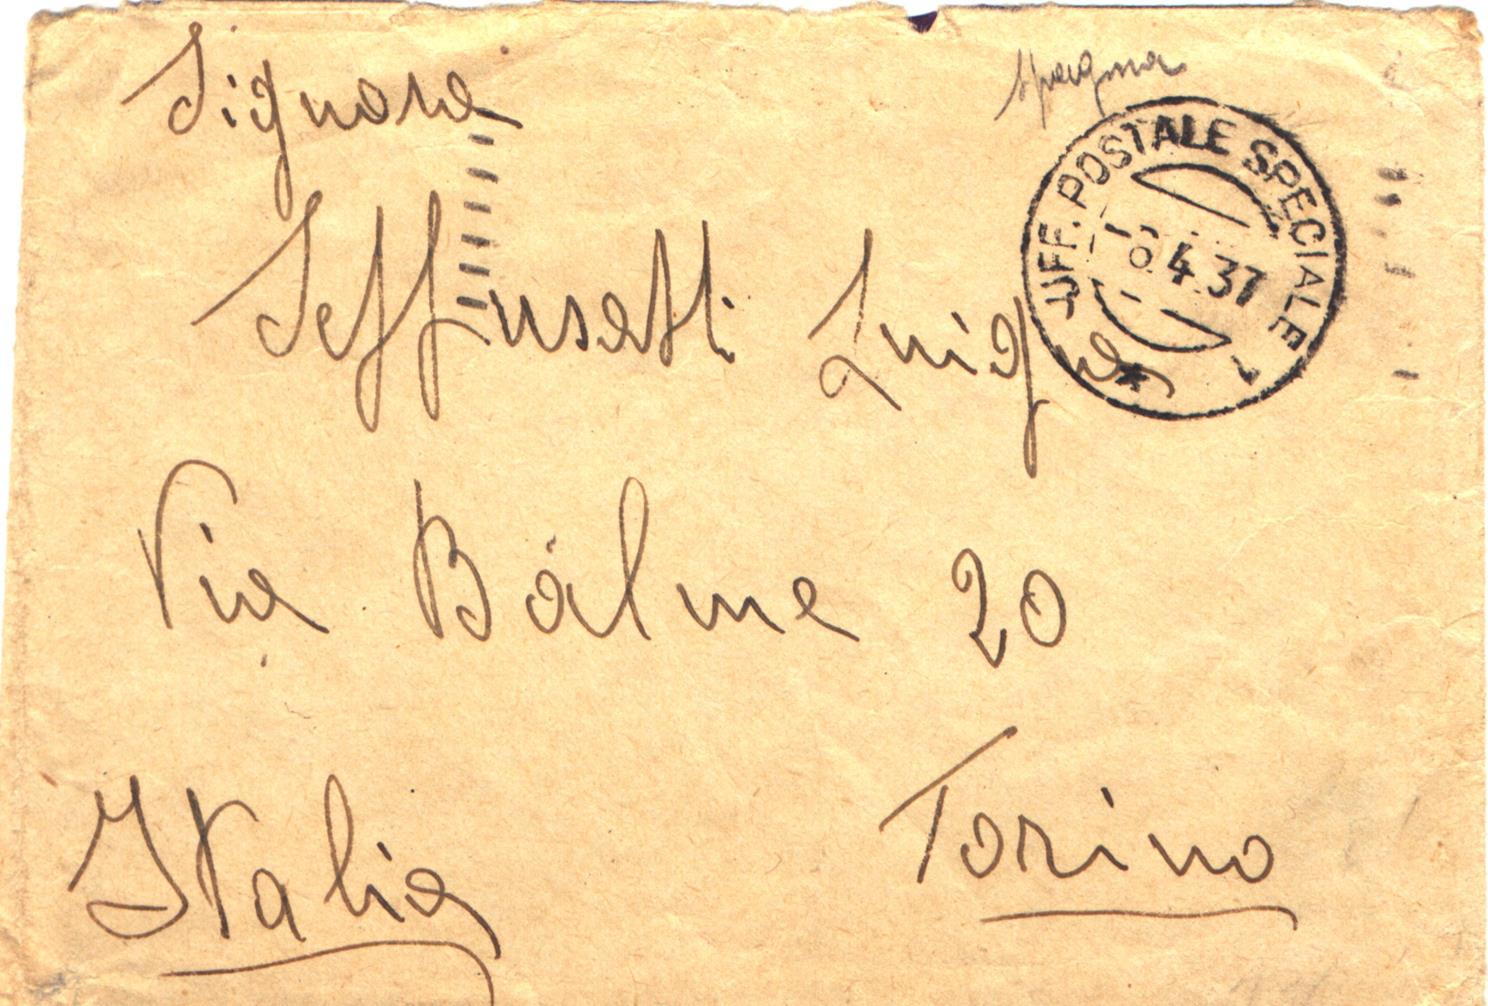 Spagna
Signora
UFF. POSTALE SPECIALE 1
4.37
Luigia
Via Bàlme 20
Torino
Italia